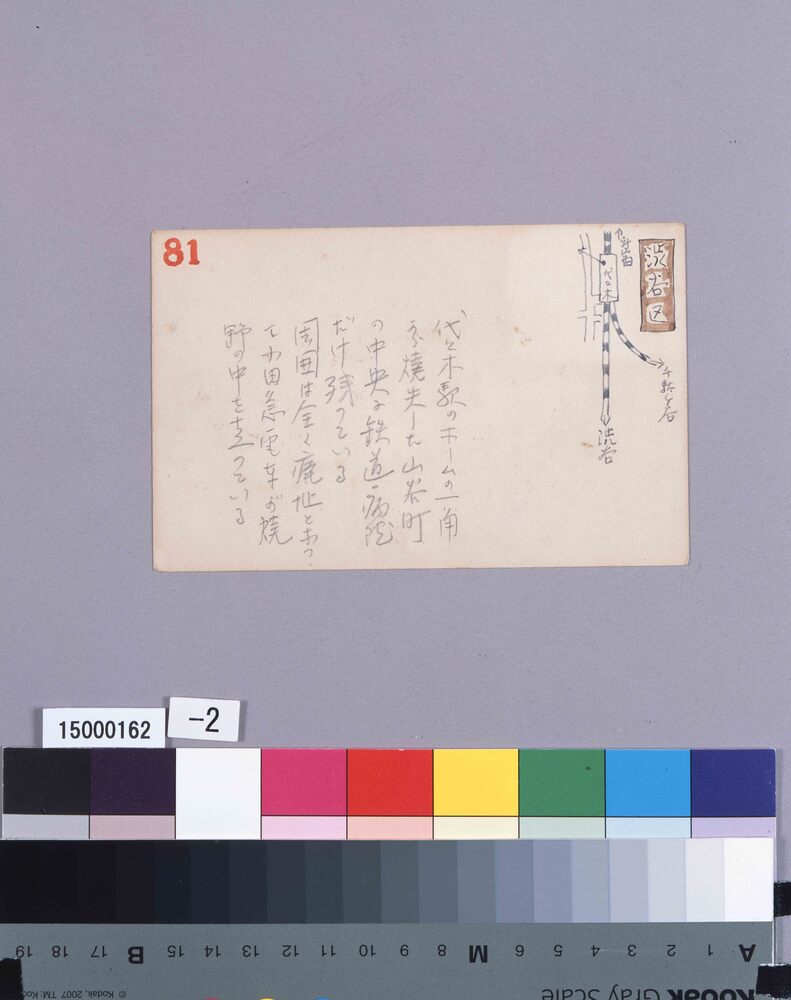 81
渋谷区
新宿
代々木
千駄ヶ谷
渋谷
代々木駅のホームの一角
から焼失した山谷町
の中央に鉄道病院
だけ残っている
周囲は全く廃址となっ
て小田急電車が焼
野の中を走っている
15000162
-2
A 1 2 3 4 5 6 M 8 9 10 11 12 13 14 15 B 17 18 19
KODAK Gray Scale
© Kodak, 2007 TM: Kod